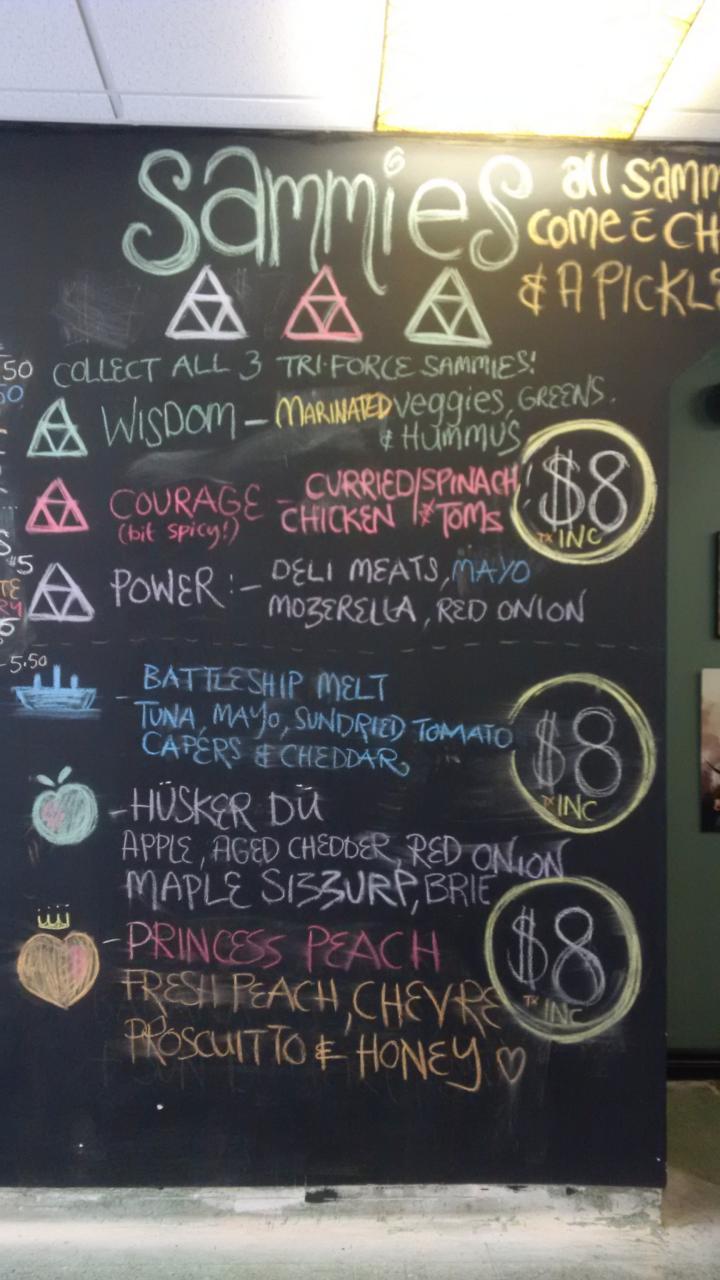 Sammies
all samm
come c̄ CH
& A PICKLE
COLLECT ALL 3 TRI·FORCE SAMMIES!
WISDOM - MARINATED veggies, GREENS.
& HUMMUS
$8
TX INC
COURAGE - CURRIED/SPINACH
(bit spicy!) CHICKEN & TOMS
POWER:- DELI MEATS, MAYO
MOZERELLA, RED ONION
50
50
$5
TE
RY
- 5.50
- BATTLESHIP MELT
TUNA, MAYO, SUNDRIED TOMATO
CAPERS & CHEDDAR
$8
TX INC
- HÜSKER DÜ
APPLE, AGED CHEDDER, RED ONION
MAPLE SIZZURP, BRIE
$8
TX INC
- PRINCESS PEACH
FRESH PEACH, CHEVRE
PROSCUITTO & HONEY ♡